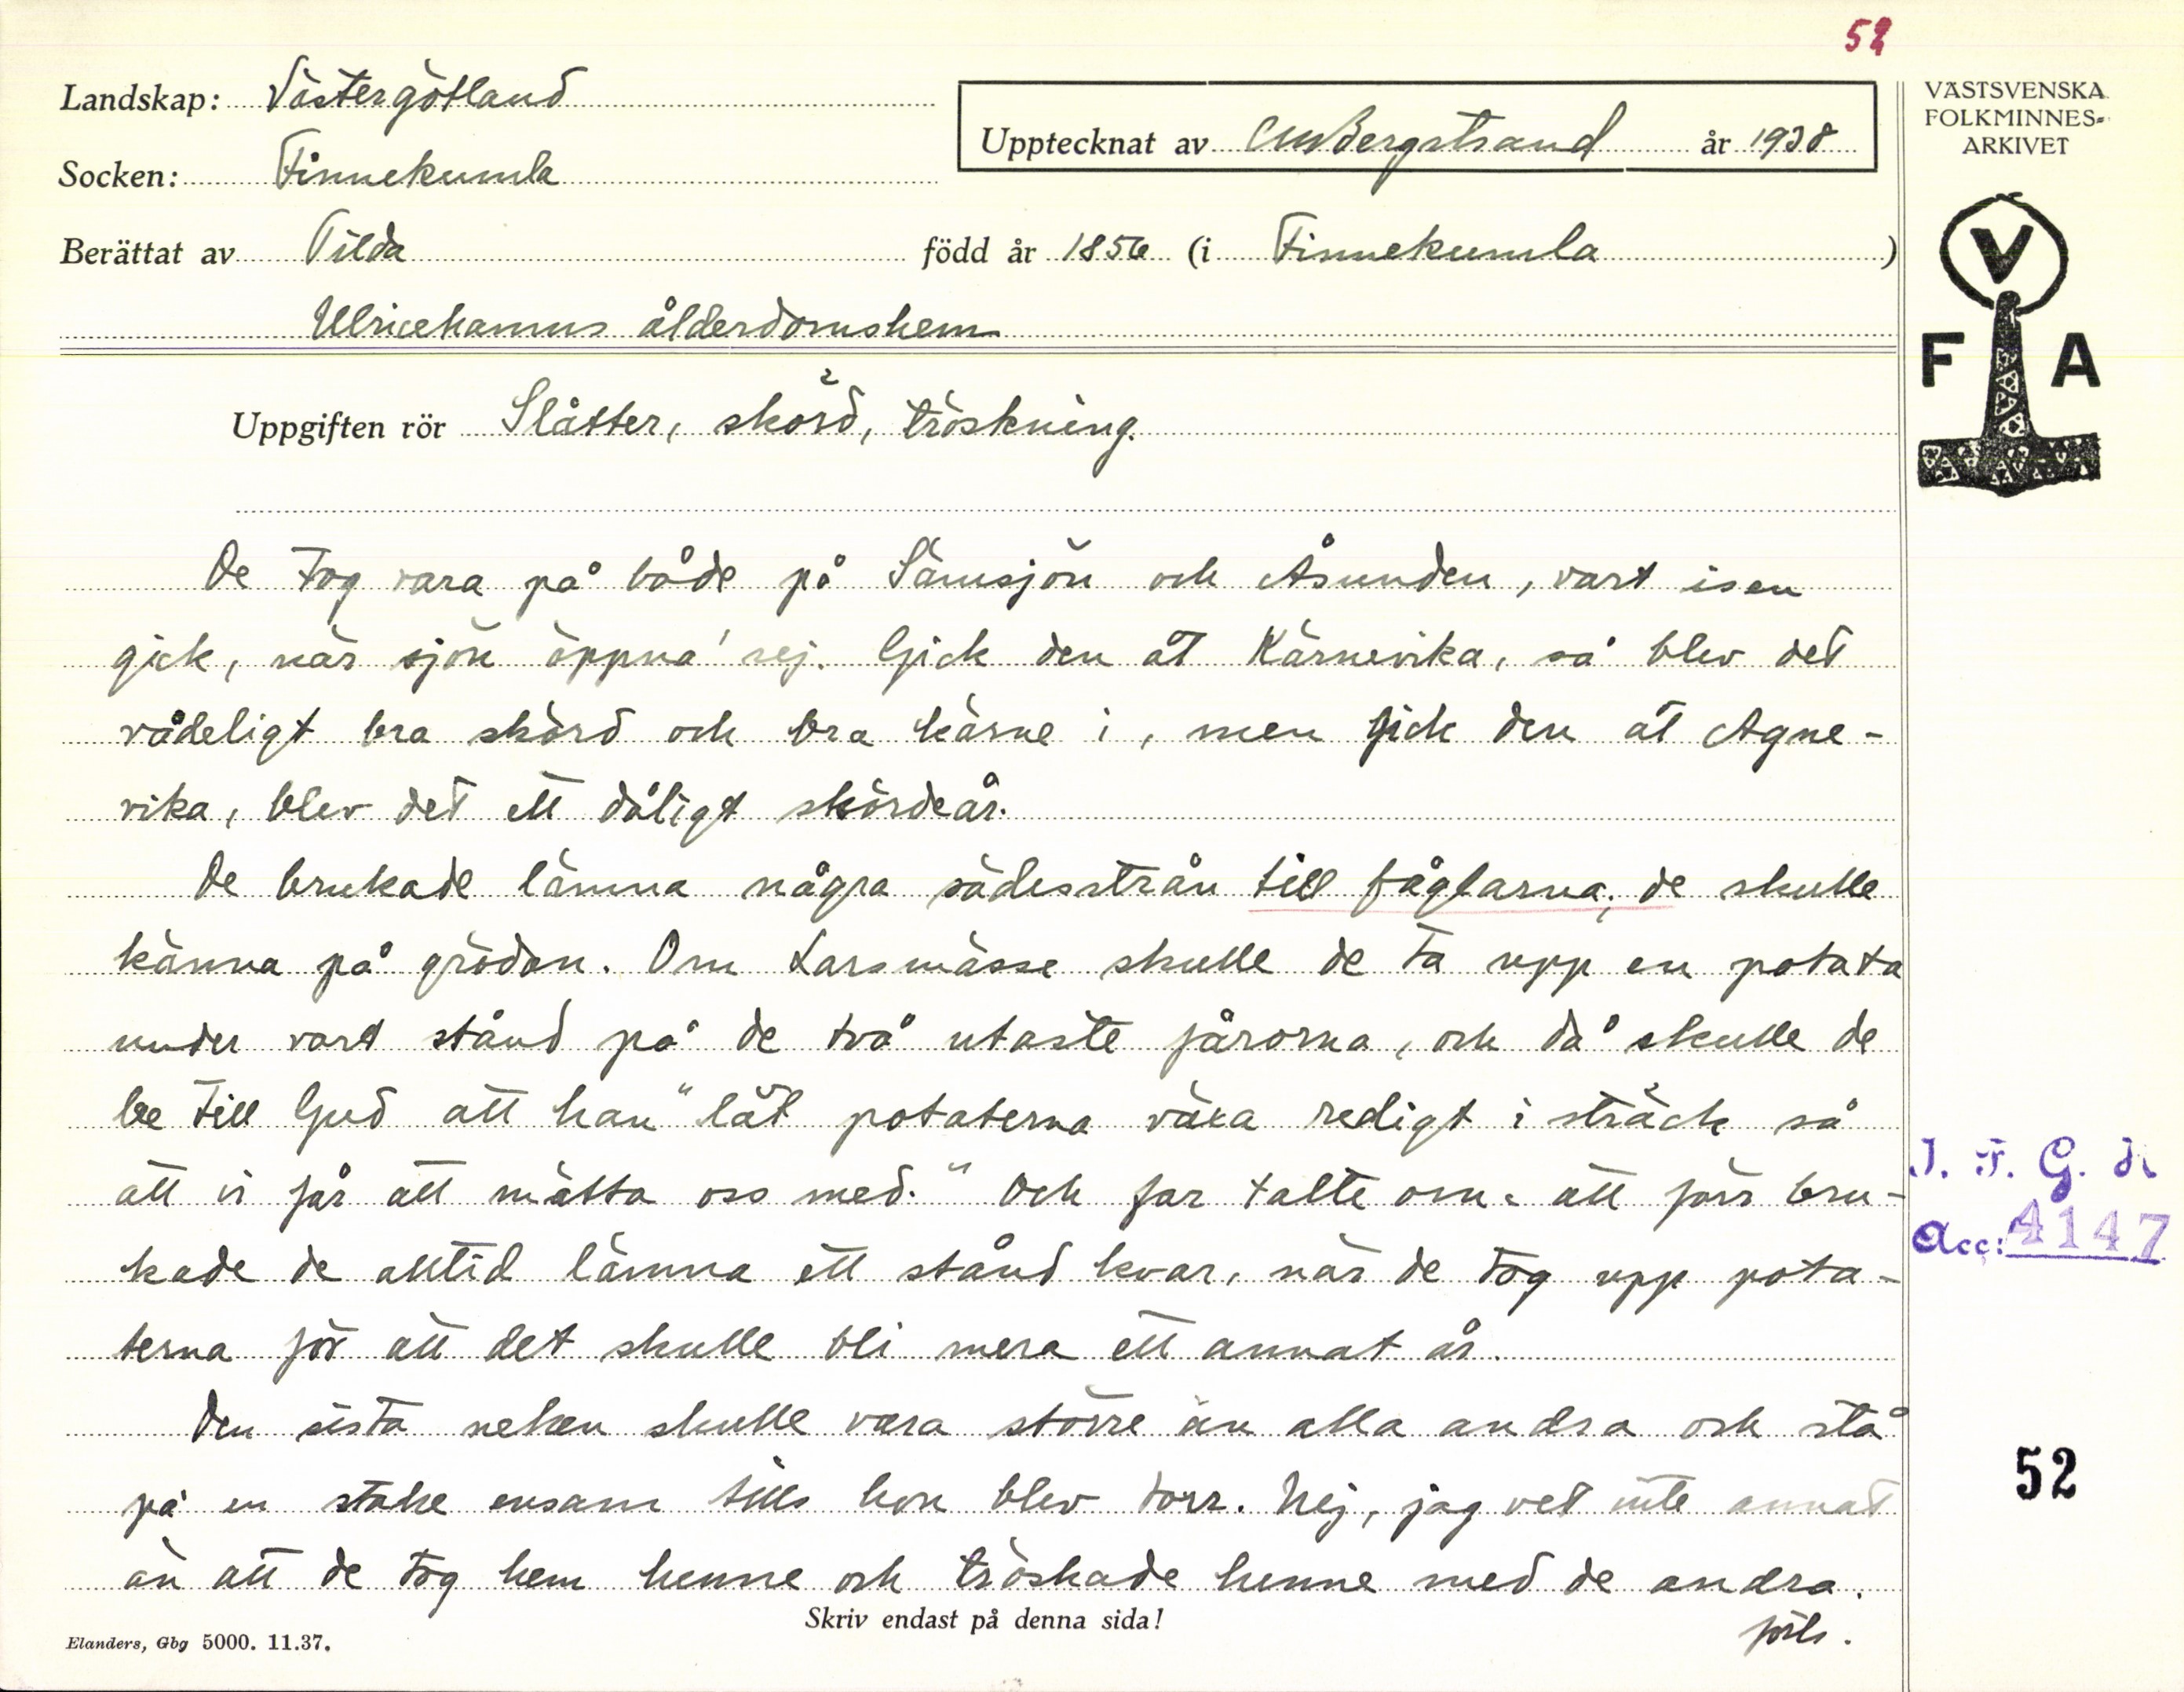 52
Landskap: Västergötland
Upptecknat av CMBergstrand år 1938
VÄSTSVENSKA
FOLKMINNES-
ARKIVET
V
F A
Socken: Finnekumla
Berättat av Tilda född år 1856 (i Finnekumla)
Ulricehamns ålderdomshem
Uppgiften rör Slåtter, skörd, tröskning.
De tog vara på både på Sämsjön och Åsunden, vart isen
gick, när sjön öppna' sej. Gick den åt Kärnevika, så blev det
rådeligt bra skörd och bra kärne i, men gick den åt Agne-
vika, blev det ett dåligt skördeår.
De brukade lämna några sädesstrån till fåglarna; de skulle
känna på grödan. Om Larsmässe skulle de ta upp en potata
under vart stånd på de två utaste fårorna, och då skulle de
be till Gud att han "låt potaterna växa redigt i sträck så
att vi får att mätta oss med." Och far talte om att förr bru-
kade de alltid lämna ett stånd kvar, när de tog upp pota-
terna för att det skulle bli mera ett annat år.
Den sista neken skulle vara större än alla andra och stå
på en stake ensam tills hon blev torr. Nej, jag vet inte annat
än att de tog hem henne och tröskade henne med de andra.
forts.
Skriv endast på denna sida!
Elanders, Gbg 5000. 11.37.
I. F. G. H
Acc: 4147
52